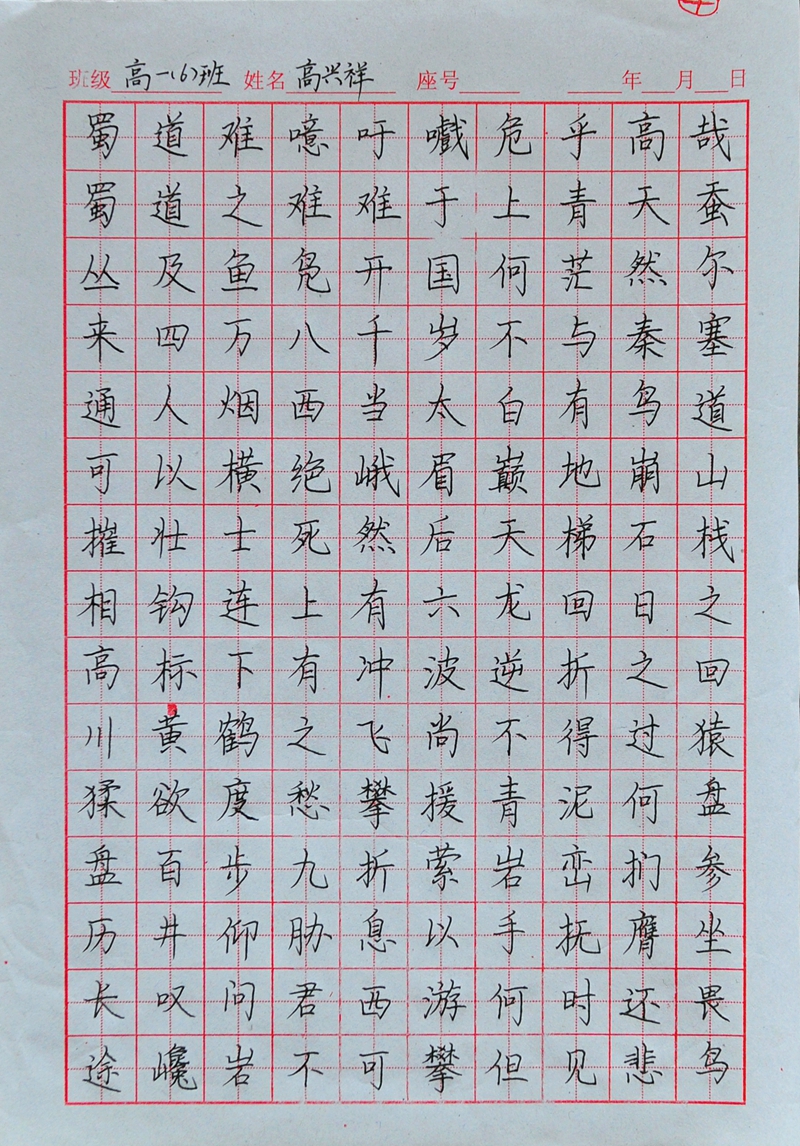 班级 高一(6)班 姓名 高兴祥 座号 年 月 日
蜀道难噫吁嚱危乎高哉
蜀道之难难于上青天蚕
丛及鱼凫开国何茫然尔
来四万八千岁不与秦塞
通人烟西当太白有鸟道
可以横绝峨眉巅地崩山
摧壮士死然后天梯石栈
相钩连上有六龙回日之
高标下有冲波逆折之回
川黄鹤之飞尚不得过猿
猱欲度愁攀援青泥何盘
盘百步九折萦岩峦扪参
历井仰胁息以手抚膺坐
长叹问君西游何时还畏
途巉岩不可攀但见悲鸟